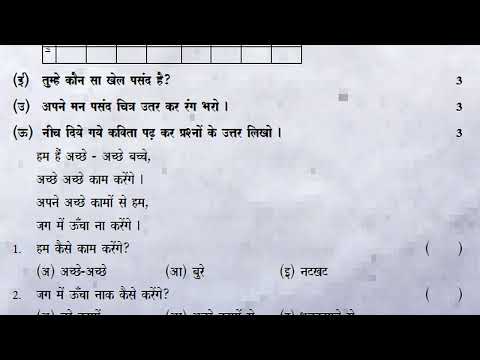 (ई) तुम्हे कौन सा खेल पसंद है? 3
(उ) अपने मन पसंद चित्र उतर कर रंग भरो । 3
(ऊ) नीच दिये गये कविता पढ़ कर प्रश्नों के उत्तर लिखो । 3
हम हैं अच्छे - अच्छे बच्चे,
अच्छे अच्छे काम करेंगे ।
अपने अच्छे कामों से हम,
जग में ऊँचा ना करेंगे ।
1. हम कैसे काम करेंगे? ( )
(अ) अच्छे-अच्छे (आ) बुरे (इ) नटखट
2. जग में ऊँचा नाक कैसे करेंगे? ( )